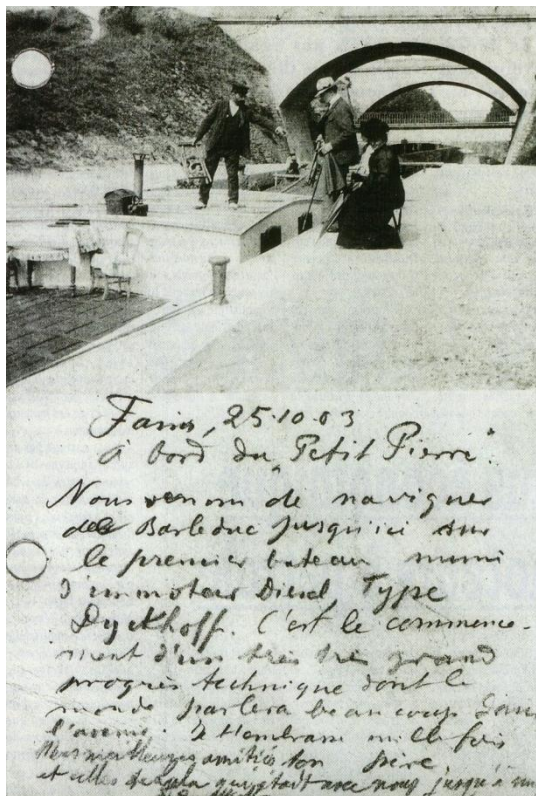 Fains, 25.10.03
à bord du "Petit Pierre".
Nous venons de naviguer
de Barleduc jusqu'ici sur
le premier bateau muni
d'un moteur Diesel, Type
Dyckhoff. C'est le commence-
ment d'un très très grand
progrès technique dont le
monde parlera beaucoup dans
l'avenir. Je t'embrasse mille fois
ton père.
amitiés
et celles de qui était avec nous jusqu'à